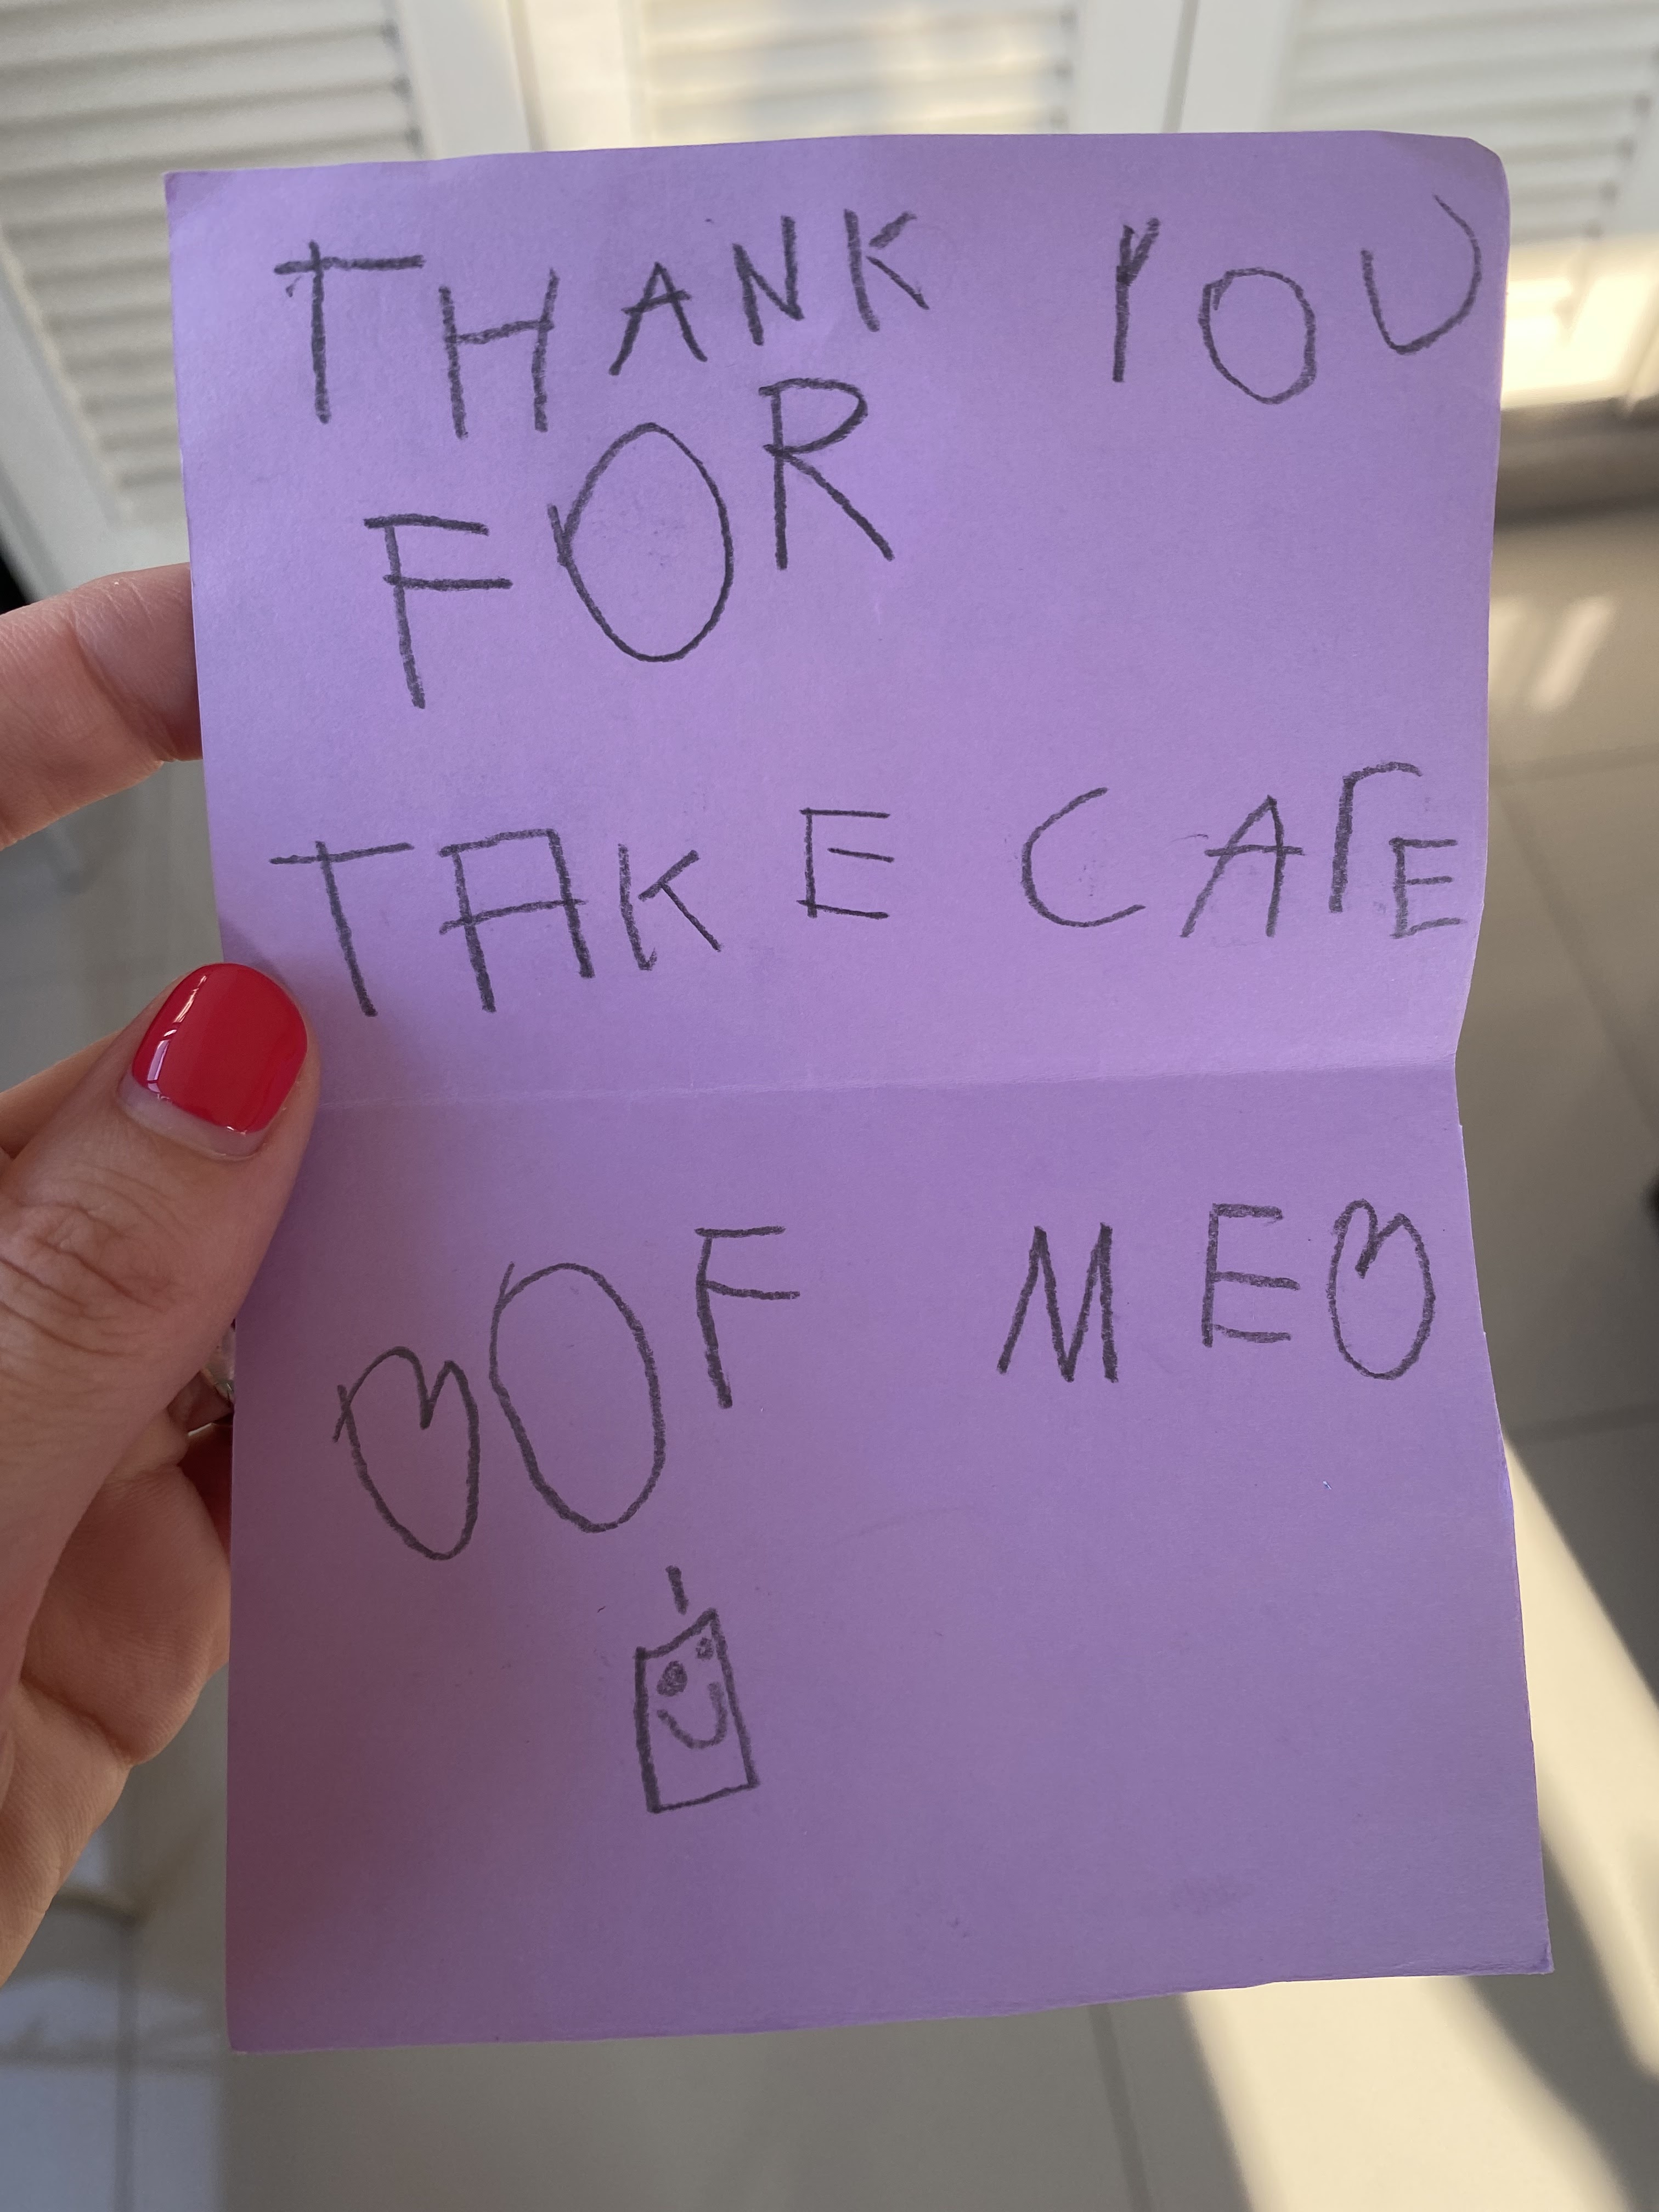 THANK YOU
FOR
TAKE CARE
♡OF ME♡